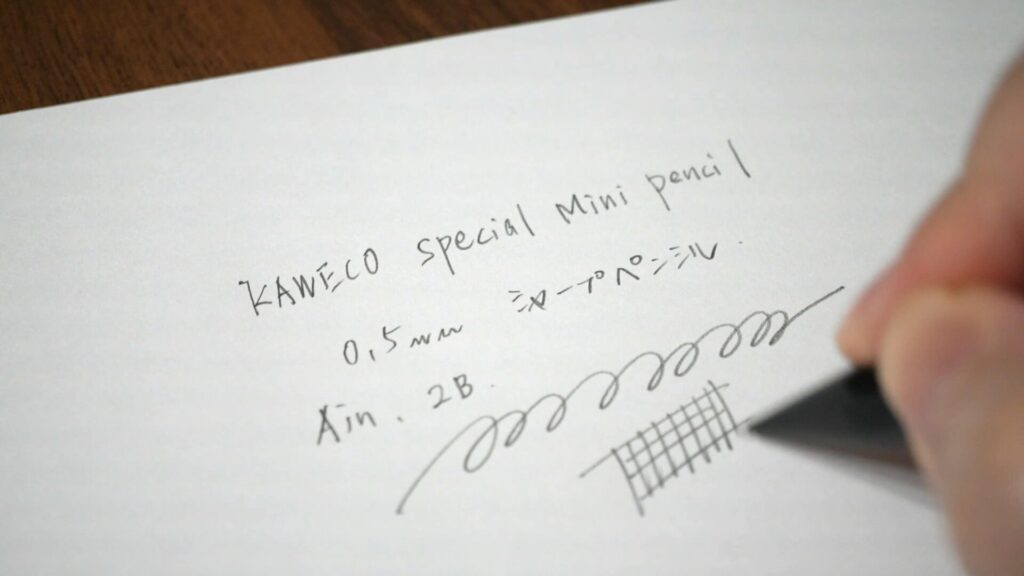 KAWECO special Mini pencil
0,5mm シャープペンシル
Ain. 2B.